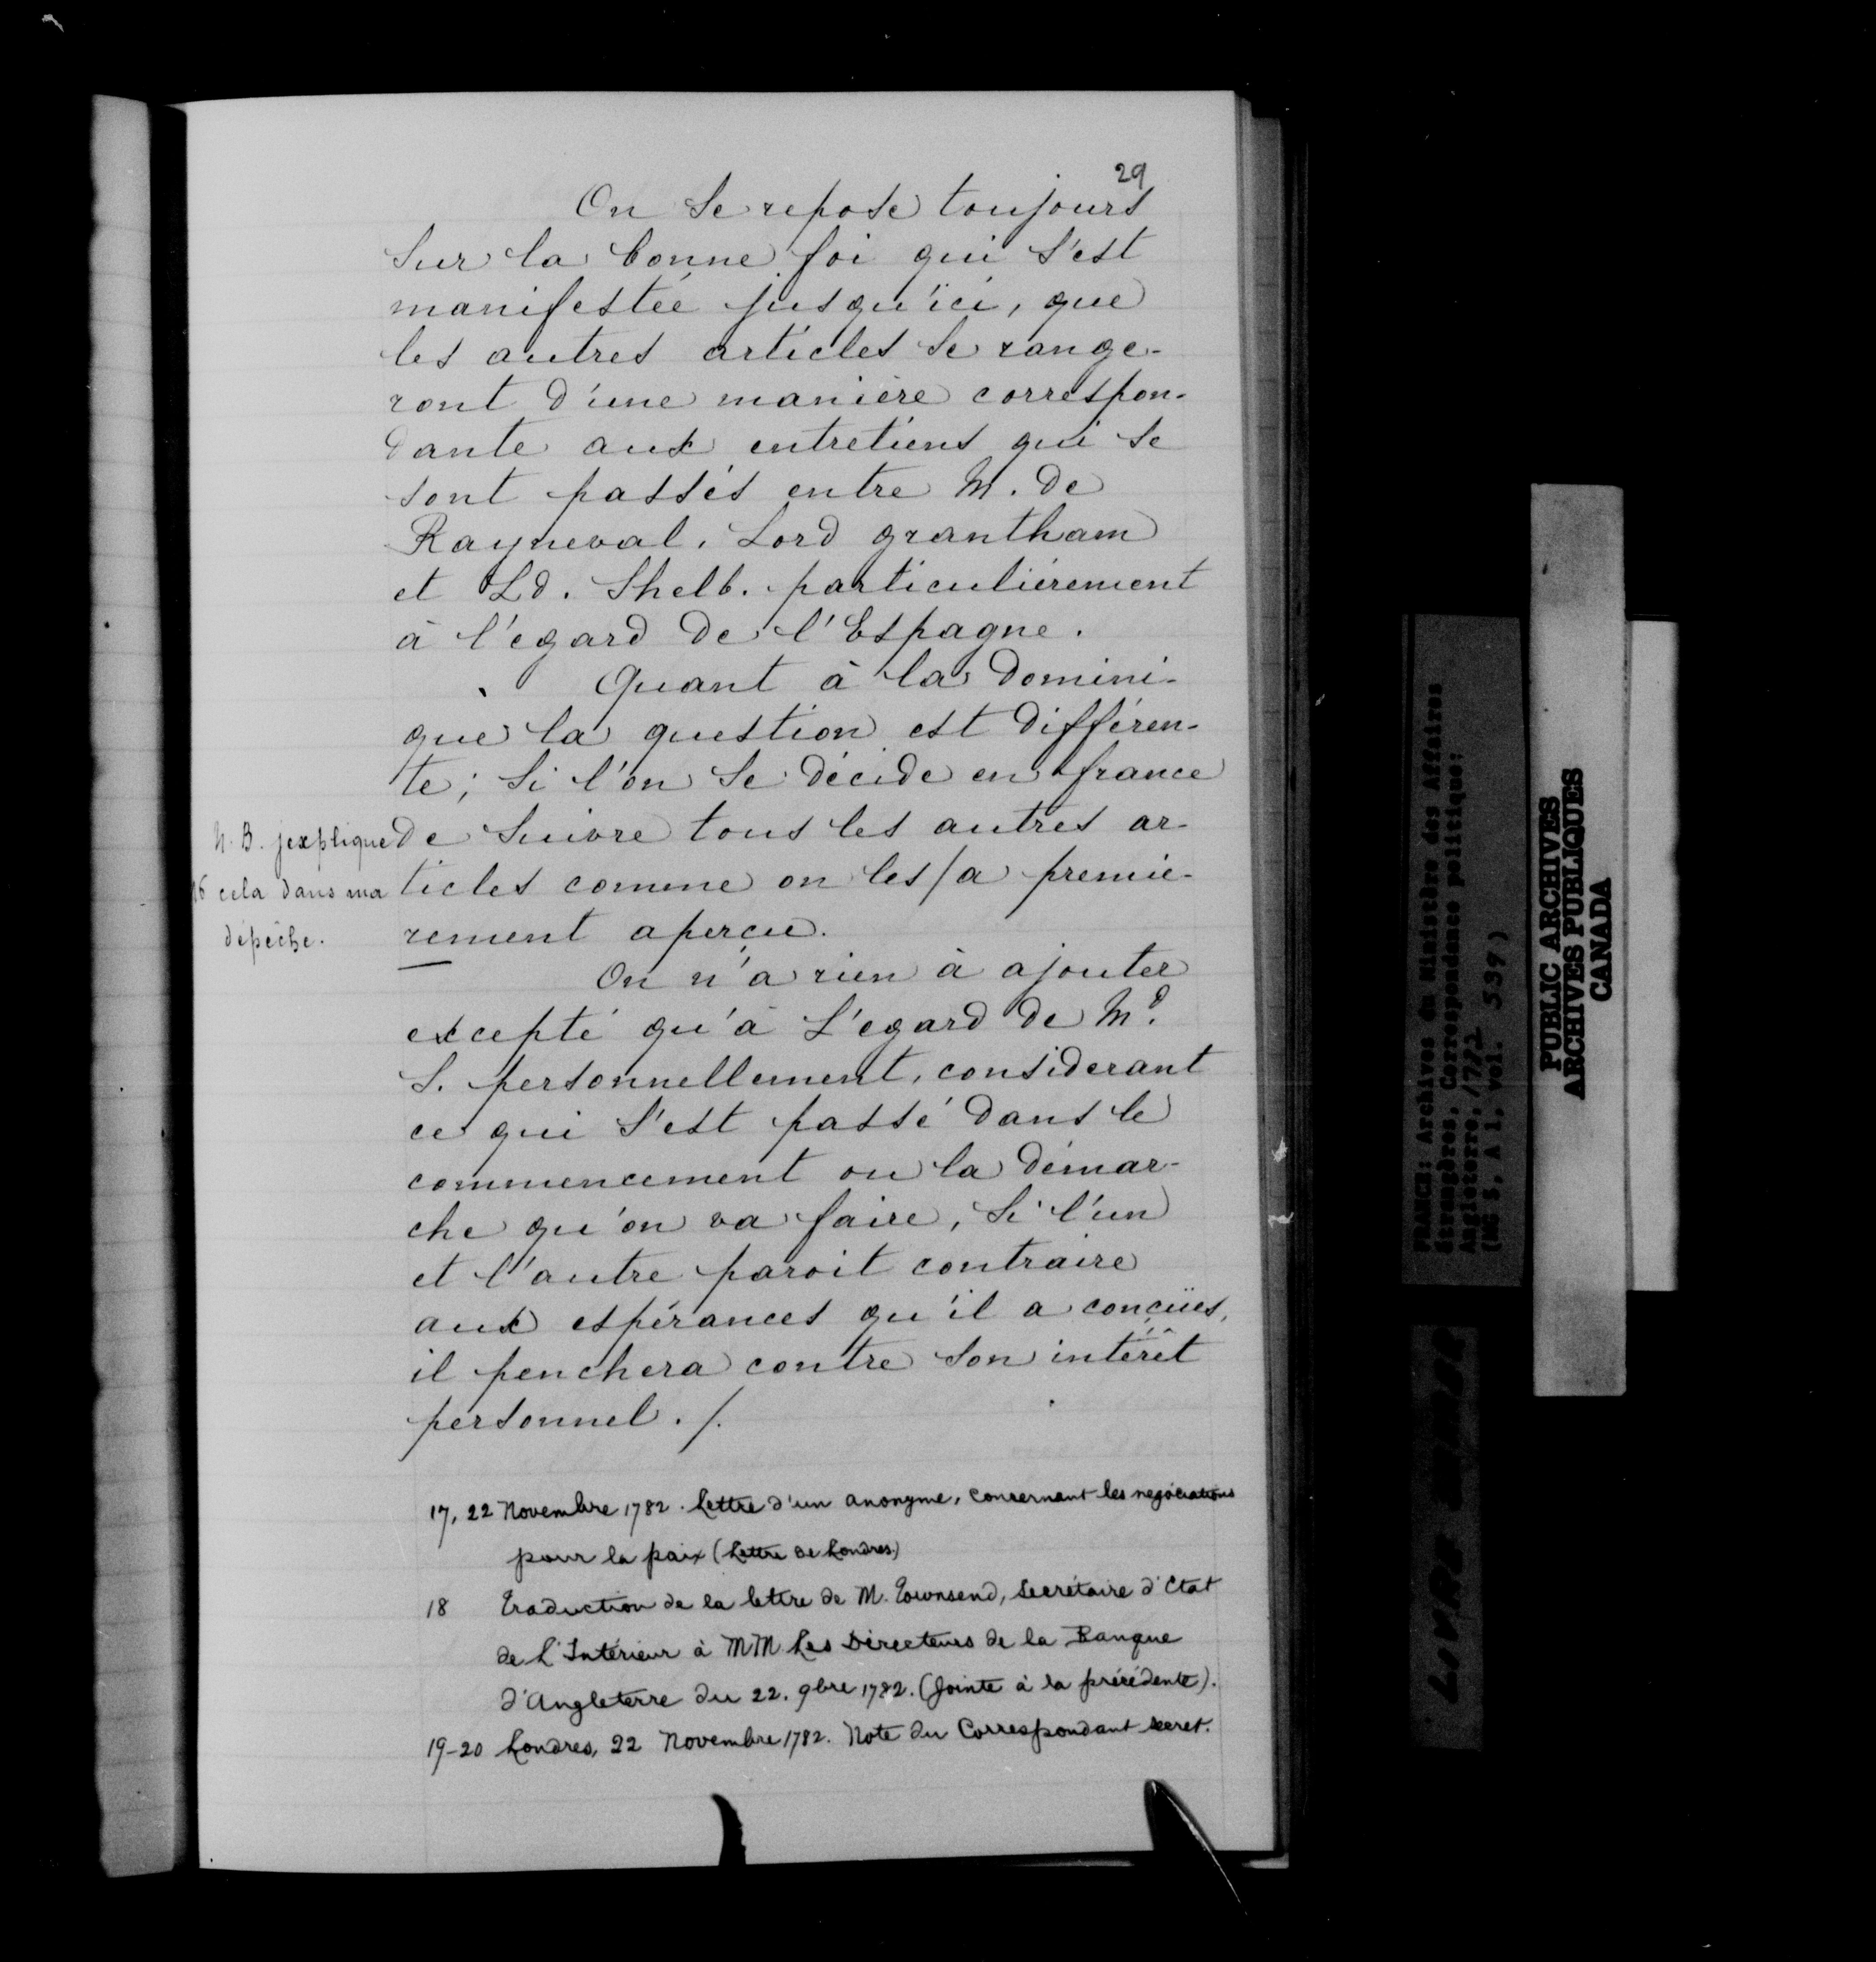 29
On se repose toujours
sur la bonne foi qui s'est
manifestée jusqu'ici, que
les autres articles se range-
ront d'une manière correspon-
dante aux entretiens qui se
sont passés entre M. de
Rayneval, Lord grantham
et Ld. Shelb. particulièrement
à l'egard de l'Espagne.
Quant à la Domini-
que la question est différen-
te; si l'on se décide en france
de suivre tous les autres ar-
ticles comme on les/a premie-
rement aperçu.
N.B. jexplique
16 cela dans ma
dépêche.
On n'a rien à ajouter
excepté qu'à L'egard de Md.
S. personnellement, considerant
ce qui s'est passé dans le
commencement ou la démar-
che qu'on va faire, si l'un
et l'autre paroit contraire
aux espérances qu'il a conçües,
il penchera contre son intérêt
personnel ./.
17, 22 Novembre 1782. Lettre d'un anonyme, concernant les negociations
pour la paix (Lettre de Londres)
18 Traduction de la lettre de M. Townsend, Secrétaire d'Etat
de L'Intérieur à MM Les Directeurs de la Banque
d'Angleterre du 22. 9bre 1782. (Jointe à la précédente).
19-20 Londres, 22 Novembre 1782. Note du Correspondant secret.
FRANCE: Archives du Ministère des Affaires
étrangères, Correspondance politique:
Angleterre, 1782
(MG 5, A 1, vol. 539)
PUBLIC ARCHIVES
ARCHIVES PUBLIQUES
CANADA